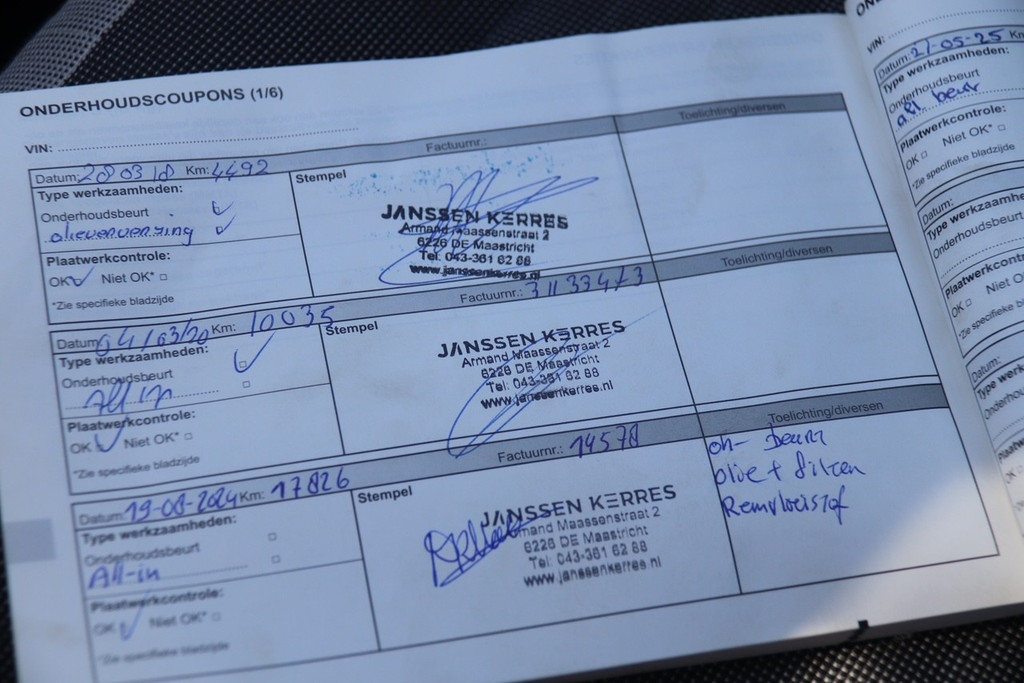 ONDERHOUDSCOUPONS (1/6)
VIN:
Factuurnr.:
Toelichting/diversen
Datum: 28 03 18 Km: 4492
Stempel
Type werkzaamheden:
Onderhoudsbeurt
olieverversing
Plaatwerkcontrole:
OK Niet OK*
*Zie specifieke bladzijde
JANSSEN KERRES
Armand Maassenstraat 2
6226 DE Maastricht
Tel: 043-361 62 68
www.janssenkerres.nl
Factuurnr.: 3113347/3
Toelichting/diversen
Datum: 04/03/20 Km: 10035
Stempel
Type werkzaamheden:
Onderhoudsbeurt
All in
Plaatwerkcontrole:
OK Niet OK*
*Zie specifieke bladzijde
JANSSEN KERRES
Armand Maassenstraat 2
6226 DE Maastricht
Tel: 043-361 62 68
www.janssenkerres.nl
Factuurnr.: 14578
Toelichting/diversen
Datum: 19-08-2024 Km: 17826
Stempel
Type werkzaamheden:
Onderhoudsbeurt
All-in
Plaatwerkcontrole:
OK Niet OK*
*Zie specifieke bladzijde
JANSSEN KERRES
Armand Maassenstraat 2
6226 DE Maastricht
Tel: 043-361 62 68
www.janssenkerres.nl
on- beurt
olie + filter
Remvloeistof
VIN:
Datum: 27-05-25 Km
Type werkzaamheden:
Onderhoudsbeurt
all. beurt
Plaatwerkcontrole:
OK Niet OK*
*Zie specifieke bladzijde
Datum:
Type werkzaamhe
Onderhoudsbeurt
Plaatwerkcontro
OK Niet O
*Zie specifieke b
Datum:
Type werk
Onderhoud
Plaatwer
OK
*Zie spec